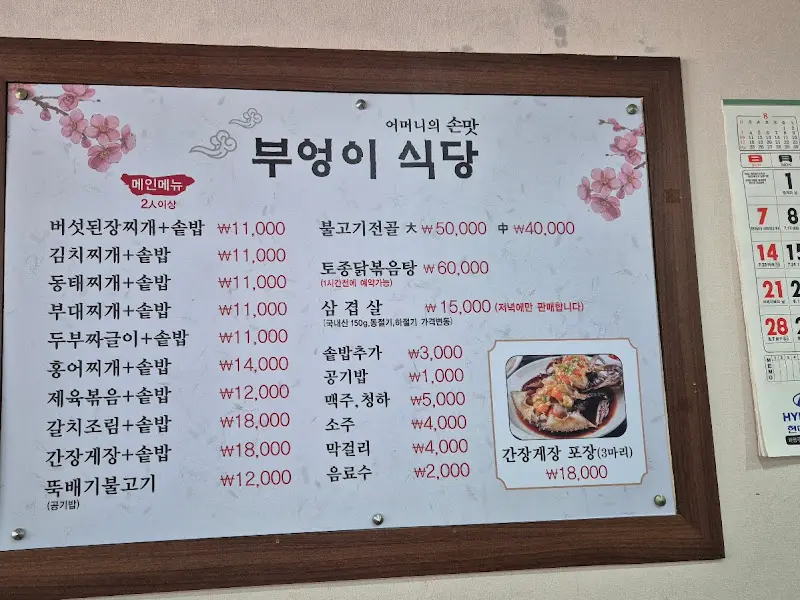 어머니의 손맛
부엉이 식당
메인메뉴
2人이상
버섯된장찌개+솥밥 ₩11,000
김치찌개+솥밥 ₩11,000
동태찌개+솥밥 ₩11,000
부대찌개+솥밥 ₩11,000
두부짜글이+솥밥 ₩11,000
홍어찌개+솥밥 ₩14,000
제육볶음+솥밥 ₩12,000
갈치조림+솥밥 ₩18,000
간장게장+솥밥 ₩18,000
뚝배기불고기 ₩12,000
(공기밥)
불고기전골 大 ₩50,000 中 ₩40,000
토종닭볶음탕 ₩60,000
(1시간전에 예약가능)
삼겹살 ₩15,000 (저녁에만 판매합니다)
(국내산 150g,동절기,하절기 가격변동)
솥밥추가 ₩3,000
공기밥 ₩1,000
맥주,청하 ₩5,000
소주 ₩4,000
막걸리 ₩4,000
음료수 ₩2,000
간장게장 포장(3마리)
₩18,000
8
日 月
1
7 8
14 15
21
28
MEMO
HY
현대